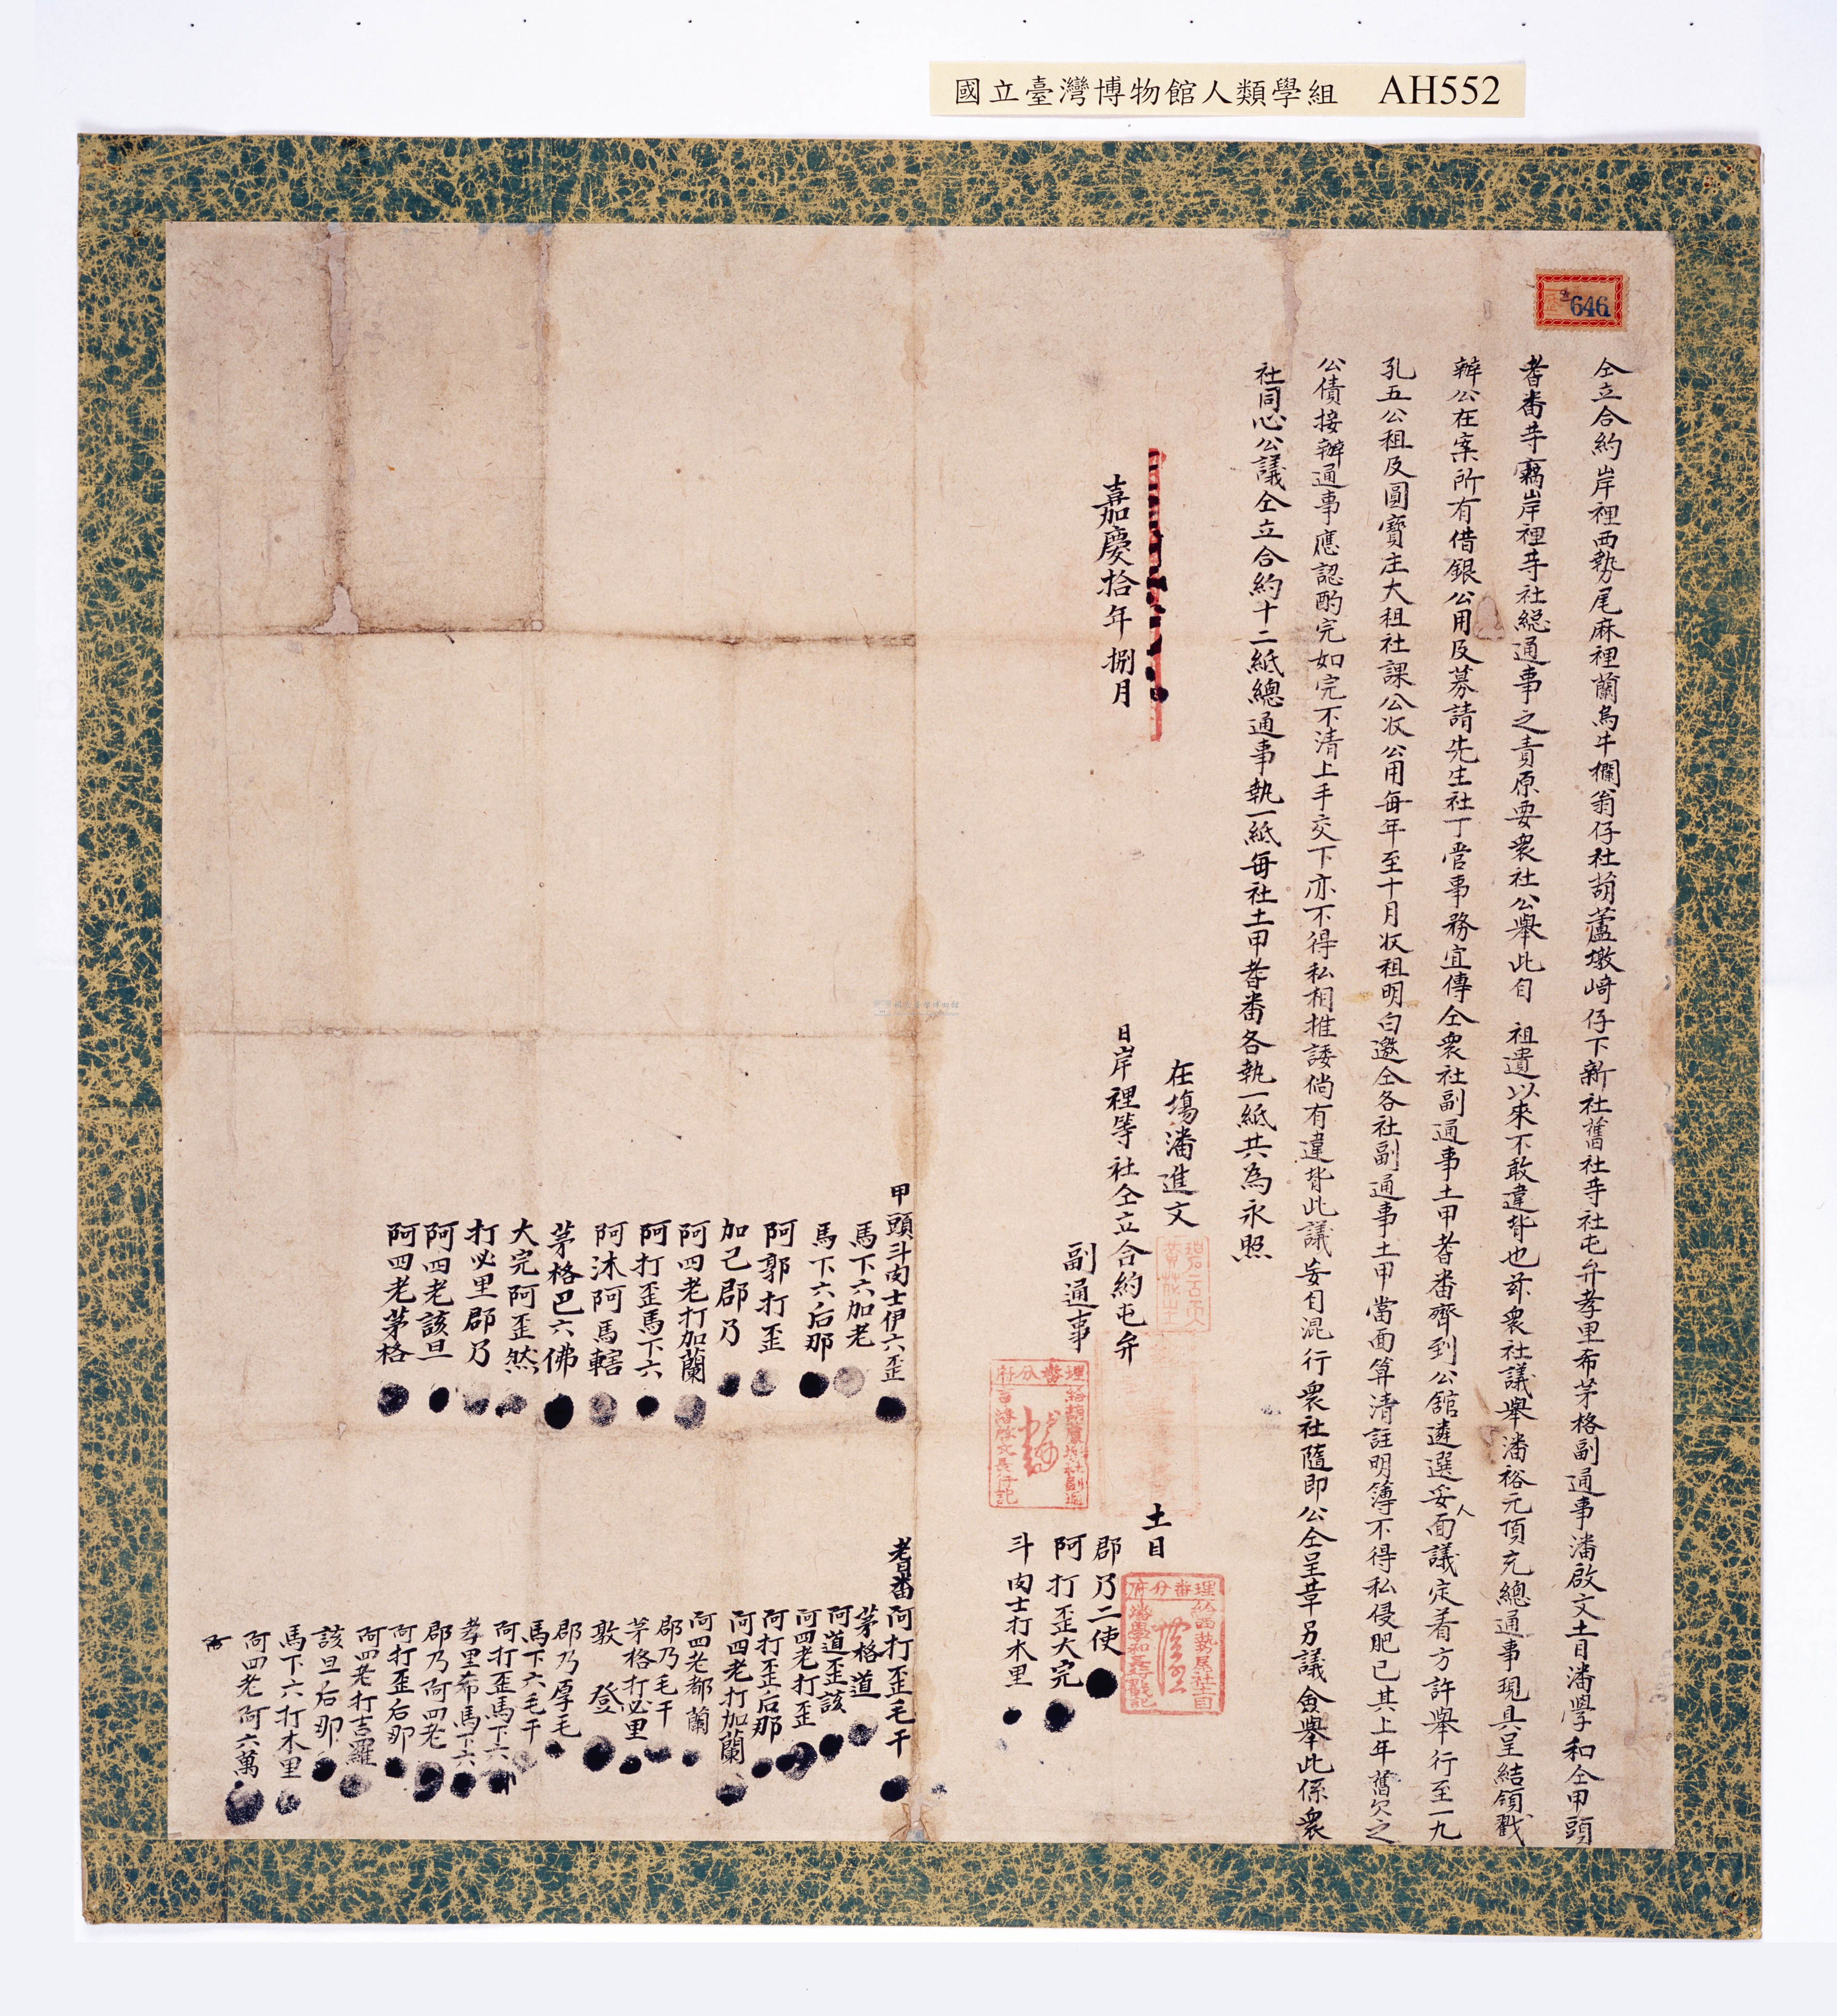 國立臺灣博物館人類學組 AH552
646
仝立合約岸裡西勢尾麻裡蘭烏牛欄翁仔社葫蘆墩崎仔下新社舊社等社屯弁孝里希茅格副通事潘啟文土目潘學和仝甲頭
耆番等竊岸裡等社総通事之責原要衆社公舉此自 祖遺以來不敢違背也茲衆社議舉潘裕元頂充總通事現具呈結領戳
辦公在案所有借銀公用及募請先生社丁管事務宜傳仝衆社副通事土甲耆番齊到公舘遴選妥人面議定着方許舉行至一九
孔五公租及圓寶庄大租社課公收公用每年至十月收租明白邀仝各社副通事土甲當面算清註明簿不得私侵肥己其上年舊欠之
公債接辦通事應認酌完如完不清上手交下亦不得私相推諉倘有違背此議妄自混行衆社隨即公仝呈革另議僉舉此係衆
社同心公議仝立合約十二紙總通事執一紙每社土甲耆番各執一紙共為永照
在塲潘進文
嘉慶拾年捌月
日岸裡等社仝立合約屯弁
副通事
理番分府
土目
郡乃二使
阿打歪大完
斗肉士打木里
理番分府
甲頭斗肉士伊六歪
馬下六加老
馬下六后那
阿郭打歪
加己郡乃
阿四老打加蘭
阿打歪馬下六
阿沐阿馬轄
茅格巴六佛
大完阿歪然
打必里郡乃
阿四老該旦
阿四老茅格
耆番阿打歪毛干
茅格道
阿道歪該
阿四老打歪
阿打歪后那
阿四老打加蘭
阿四老都蘭
郡乃毛干
茅格打必里
敦登
郡乃厚毛
馬下六毛干
阿打歪馬下六
孝里希馬下六
郡乃阿四老
阿打歪后那
阿四老打吉羅
該旦后那
馬下六打木里
阿四老阿六萬